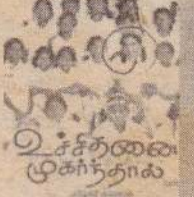 உச்சிதனை
முகர்ந்தால்